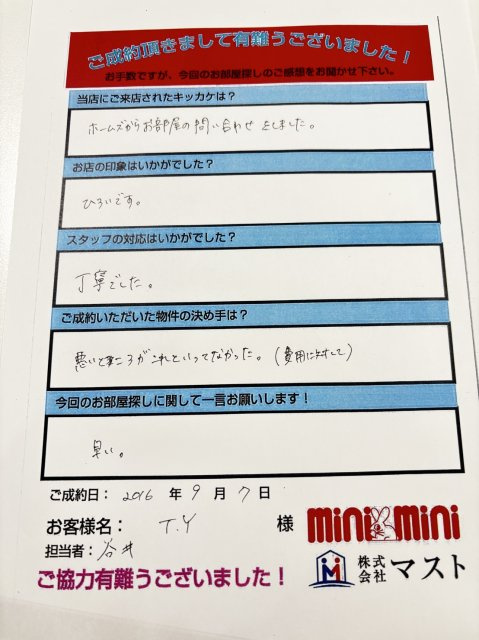 ご成約頂きまして有難うございました！
お手数ですが、今回のお部屋探しのご感想をお聞かせ下さい。
当店にご来店されたキッカケは？
ホームズからお部屋の問い合わせをしました。
お店の印象はいかがでした？
ひろいです。
スタッフの対応はいかがでした？
丁寧でした。
ご成約いただいた物件の決め手は？
悪いところがこれといってなかった。(費用に対して)
今回のお部屋探しに関して一言お願いします！
早い。
ご成約日： 2016 年 9 月 7 日
お客様名： T.Y 様
minimini
担当者： 谷井
株式会社 マスト
ご協力有難うございました！